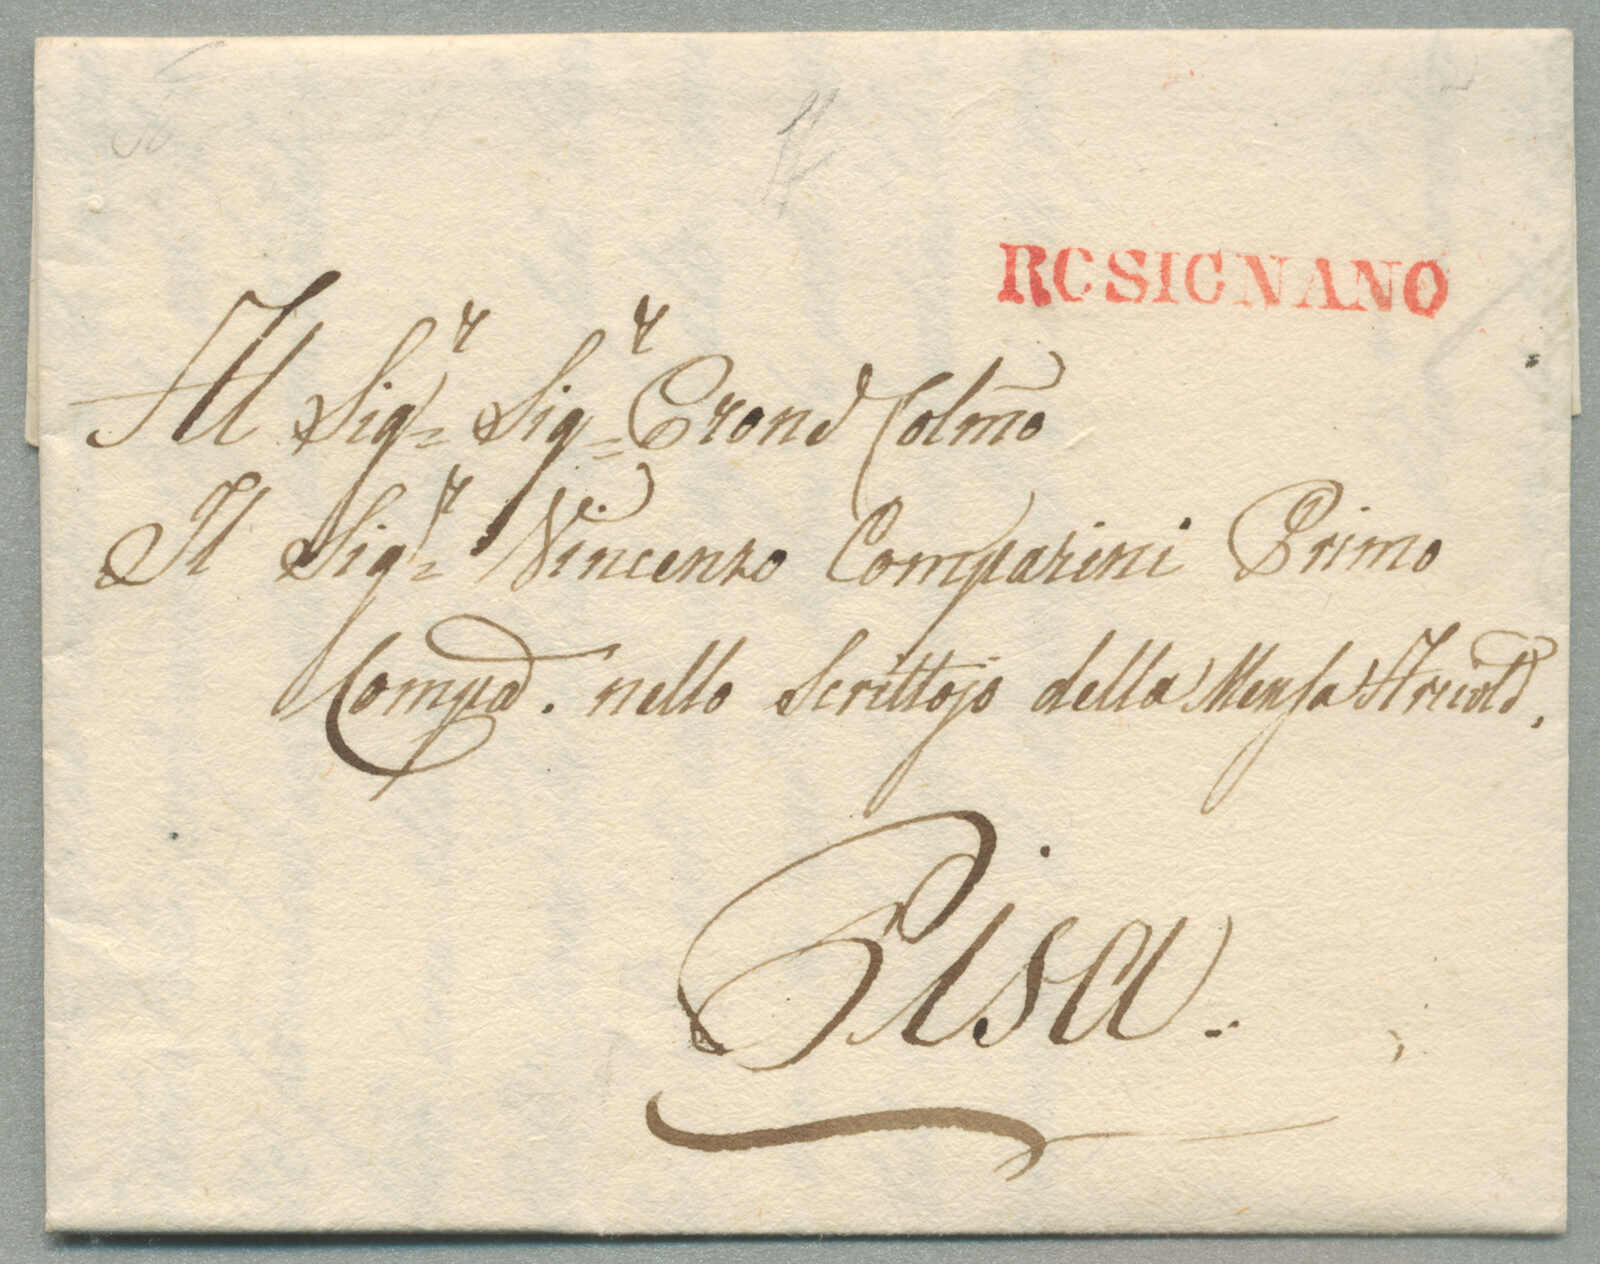 ROSIGNANO
Al Sig.r Sig.r Pron.e Colmo
Il Sig.r Vincenzo Comparini Primo
Comp.a. nello Scrittojo della Mensa Arcivld.
Pisa.